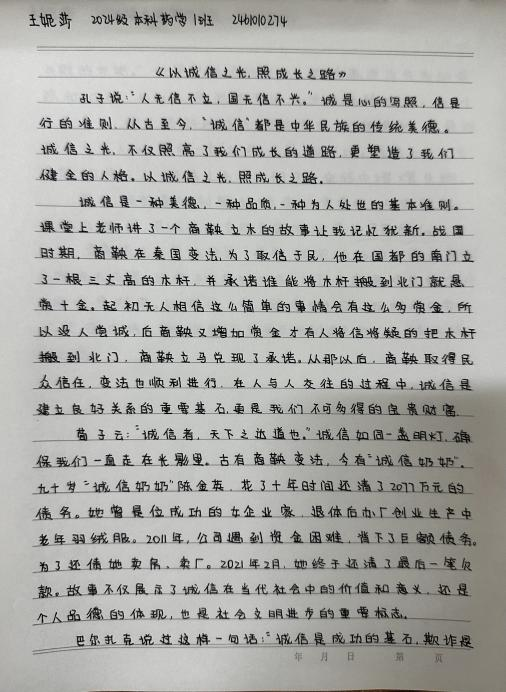 王妮莎 2024级本科药学1班 2461010274
《以诚信之光,照成长之路》
孔子说:"人无信不立,国无信不兴。"诚是心的写照,信是
行的准则。从古至今,"诚信"都是中华民族的传统美德。
诚信之光,不仅照亮了我们成长的道路,更塑造了我们
健全的人格。以诚信之光,照成长之路。
诚信是一种美德,一种品质,一种为人处世的基本准则。
课堂上老师讲了一个商鞅立木的故事让我记忆犹新。战国
时期,商鞅在秦国变法,为了取信于民,他在国都的南门立
了一根三丈高的木杆,并承诺谁能将木杆搬到北门就悬
赏十金。起初无人相信这么简单的事情会有这么多赏金,所
以没人尝试,后商鞅又增加赏金才有人将信将疑的把木杆
搬到北门,商鞅立马兑现了承诺。从那以后,商鞅取得民
众信任,变法也顺利进行。在人与人交往的过程中,诚信是
建立良好关系的重要基石,更是我们不可多得的宝贵财富
荀子云:"诚信者,天下之达道也。"诚信如同一盏明灯,确
保我们一直走在光影里。古有商鞅变法,今有"诚信奶奶"。
九十岁"诚信奶奶"陈金英,花了十年时间还清了2077万元的
债务。她曾是位成功的女企业家,退休后办厂创业生产中
老年羽绒服。2011年,公司遇到资金困难,背下了巨额债务。
为了还债她卖房、卖厂。2021年2月,她终于还清了最后一笔欠
款。故事不仅展示了诚信在当代社会中的价值和意义,还是
个人品德的体现,也是社会文明进步的重要标志。
巴尔扎克说过这样一句话:"诚信是成功的基石,欺诈是
年 月 日 第 页